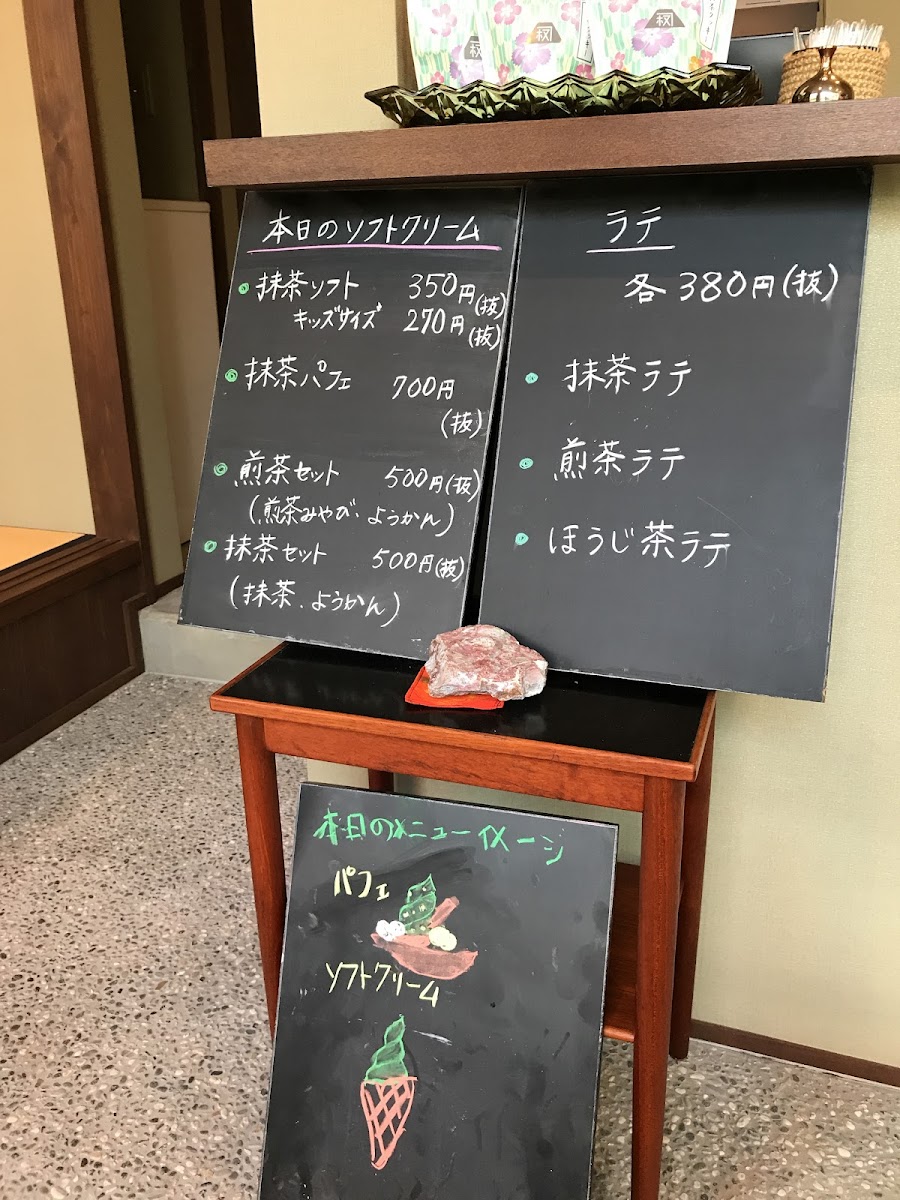 本日のソフトクリーム
抹茶ソフト 350円(抜)
キッズサイズ 270円(抜)
抹茶パフェ 700円
(抜)
煎茶セット 500円(抜)
(煎茶みやび、ようかん)
抹茶セット 500円(抜)
(抹茶、ようかん)
ラテ
各380円(抜)
抹茶ラテ
煎茶ラテ
ほうじ茶ラテ
本日のメニューイメージ
パフェ
ソフトクリーム